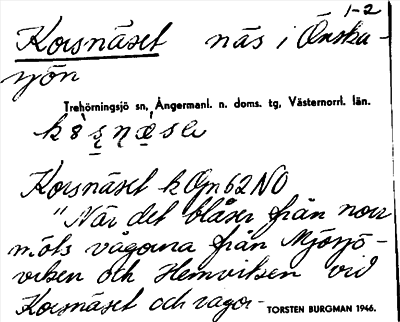 1-2
Korsnäset näs i Önska-
sjön
Trehörningsjö sn, Ångermanl. n. doms. tg, Västernorrl. län.
Korsnäset k Gm 62 NO
"När det blåser från norr
möts vågorna från Mjösjö-
viken och Hemviken vid
Korsnäset och vågor-
TORSTEN BURGMAN 1946.